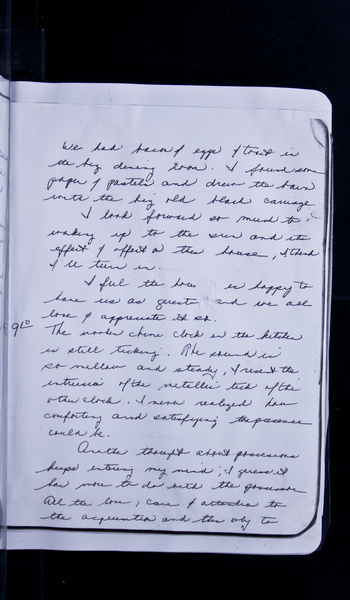 We had bacon & eggs & toast in
the big dining room. I found some
paper & pastels and drew the barn
with the big old black carriage
I look forward so much to
waking up to the sun and its
effect & affect on the house, I think
I'll turn in.
I feel the house is happy to
have us as guests and we all
love & appreciate it so.
9:20
The wooden chime clock in the kitchen
is still ticking. The sound is
so mellow and steady, I resent the
intrusion of the metallic tick of the
other clock. I never realized how
comforting and satisfying the presence
could be.
Another thought about possessions
keeps entering my mind; I guess it
has more to do with the possessor
All the love, care & attention to
the acquisition and then only to